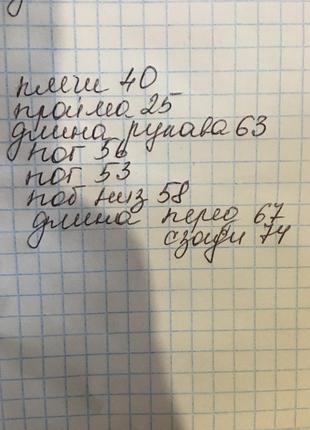 плечи 40
пройма 25
длина рукава 63
пог 56
пот 53
поб низ 58
длина перед 67
сзади 74